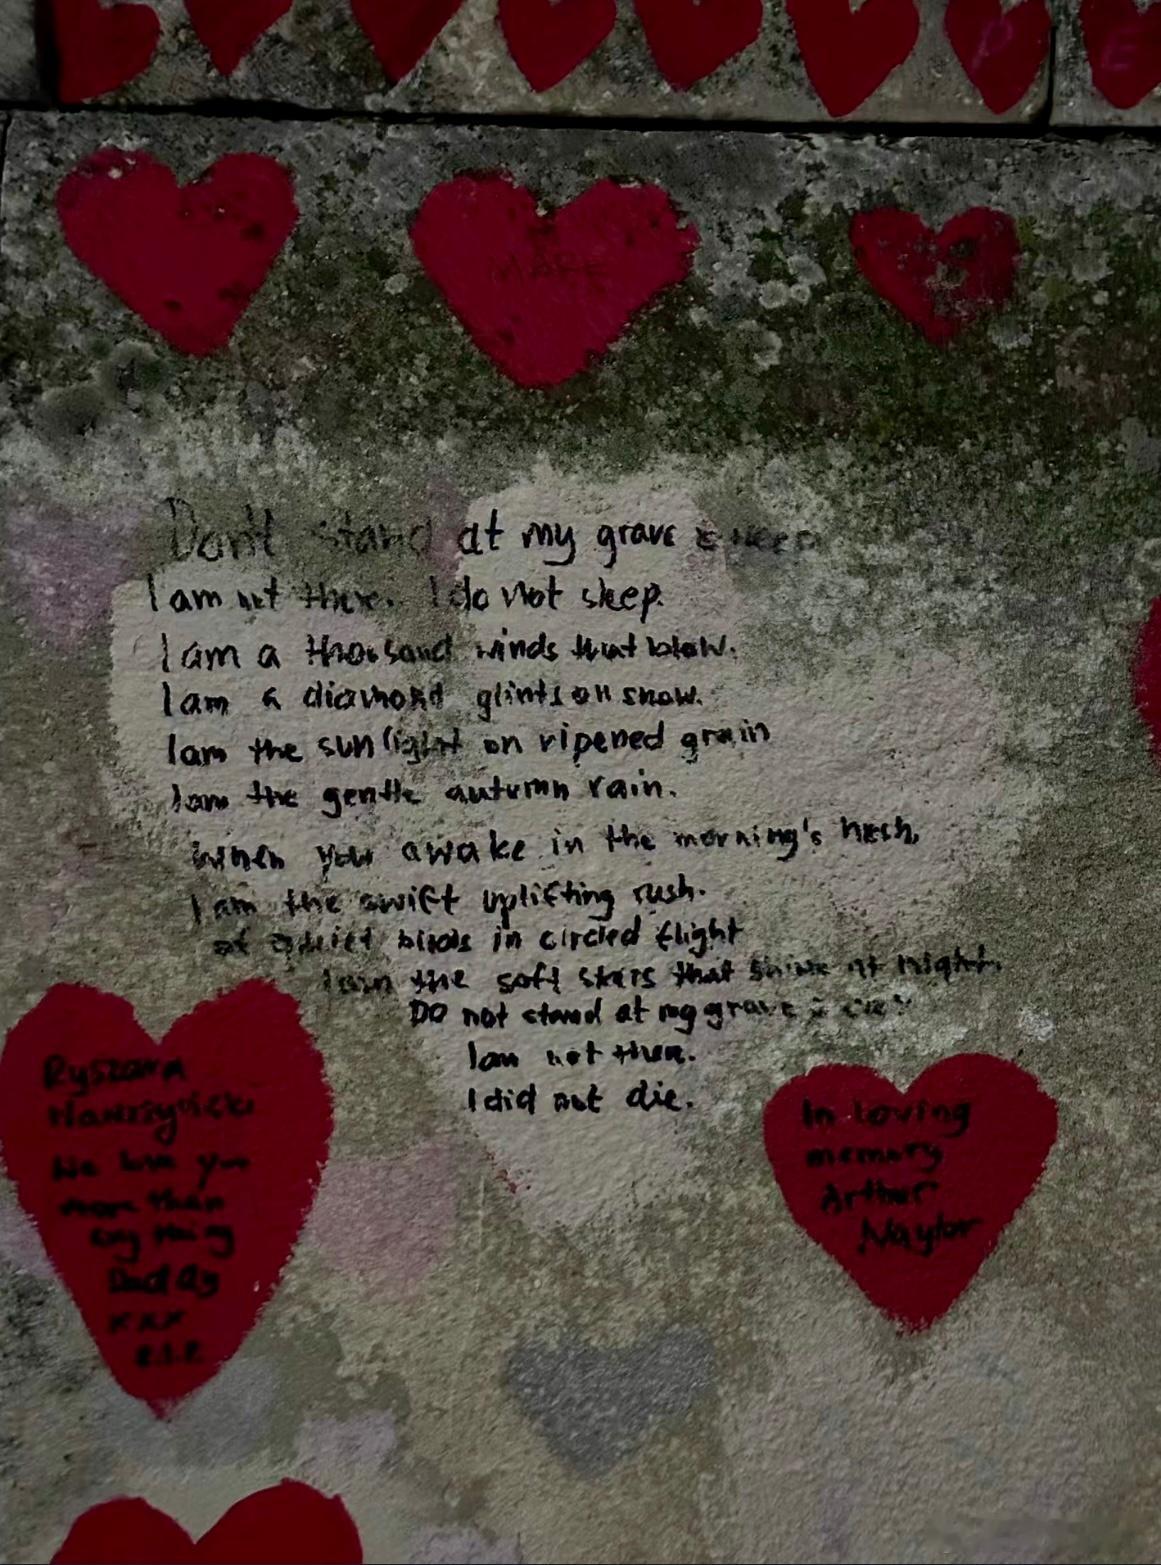 P
E
MARE
Don't stand at my grave & weep
I am not there. I do not sleep.
I am a thousand winds that blow.
I am a diamond glints on snow.
I am the sunlight on ripened grain
I am the gentle autumn rain.
When you awake in the morning's hush,
I am the swift uplifting rush.
of quiet birds in circled flight
I am the soft stars that shine at night.
Do not stand at my grave & cry
I am not there.
I did not die.
We love you
more than
anything
Daddy
xxx
R.I.P.
In loving
memory
Arthur
Naylor